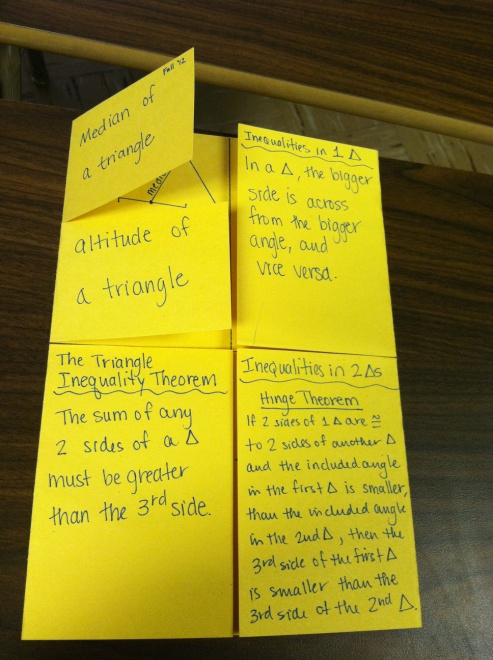 Fall '12
Median of
a triangle
altitude of
a triangle
Inequalities in 1 Δ
In a Δ, the bigger
side is across
from the bigger
angle, and
vice versa.
The Triangle
Inequality Theorem
The sum of any
2 sides of a Δ
must be greater
than the 3rd side.
Inequalities in 2 Δs
Hinge Theorem
If 2 sides of 1 Δ are ≅
to 2 sides of another Δ
and the included angle
in the first Δ is smaller,
than the included angle
in the 2nd Δ, then the
3rd side of the first Δ
is smaller than the
3rd side of the 2nd Δ.